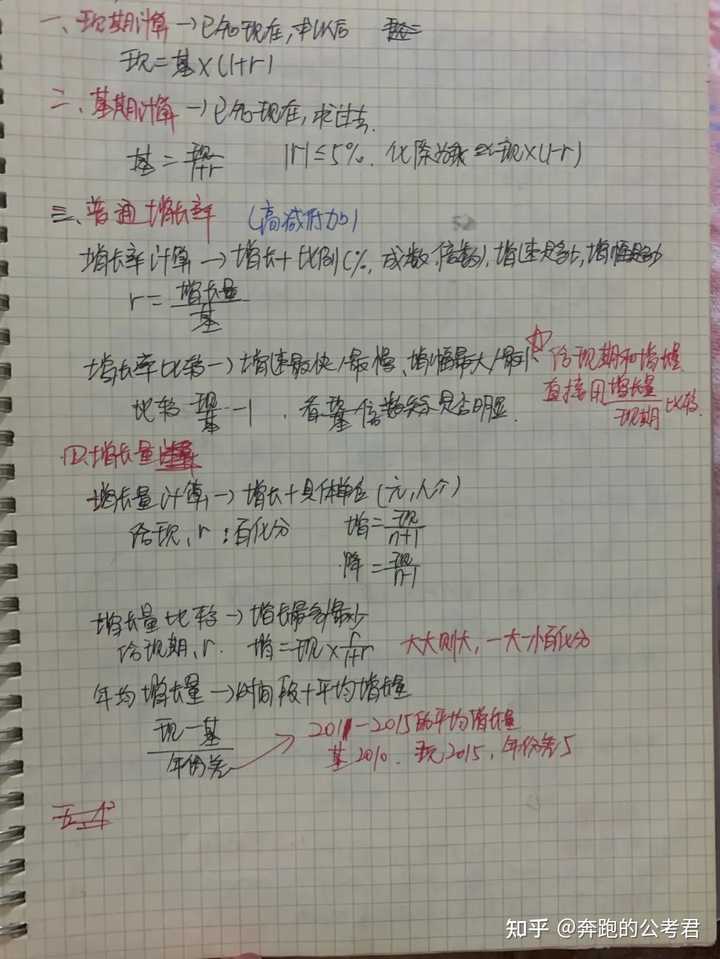 一、现期计算→已知现在,求以后
现=基×(1+r)
二、基期计算→已知现在,求过去.
基=现/1+r |r|≤5%. 化除为乘≈现×(1-r)
三、普通增长率 (高减低加)
增长率计算→增长+比例(%,成数,倍数),增速是多少,增幅是多少
r=增长量/基
增长率比较→增速最快/最慢、增幅最大/最小
给现期和增长量
直接用增长量/现期比较.
比较现/基-1,看现/基倍数关系是否明显.
四、增长量计算
增长量计算→增长+具体单位(元,人,个)
给现,r:百化分 增=现/n+1
降=现/n-1
增长量比较→增长最多/最少
给现期,r. 增=现×r/1+r 大大则大,一大一小百化分
年均增长量→时间段+平均增长量
现-基/年份差
2011-2015的平均增长量
基2010. 现2015,年份差5
五、
知乎 @奔跑的公考君